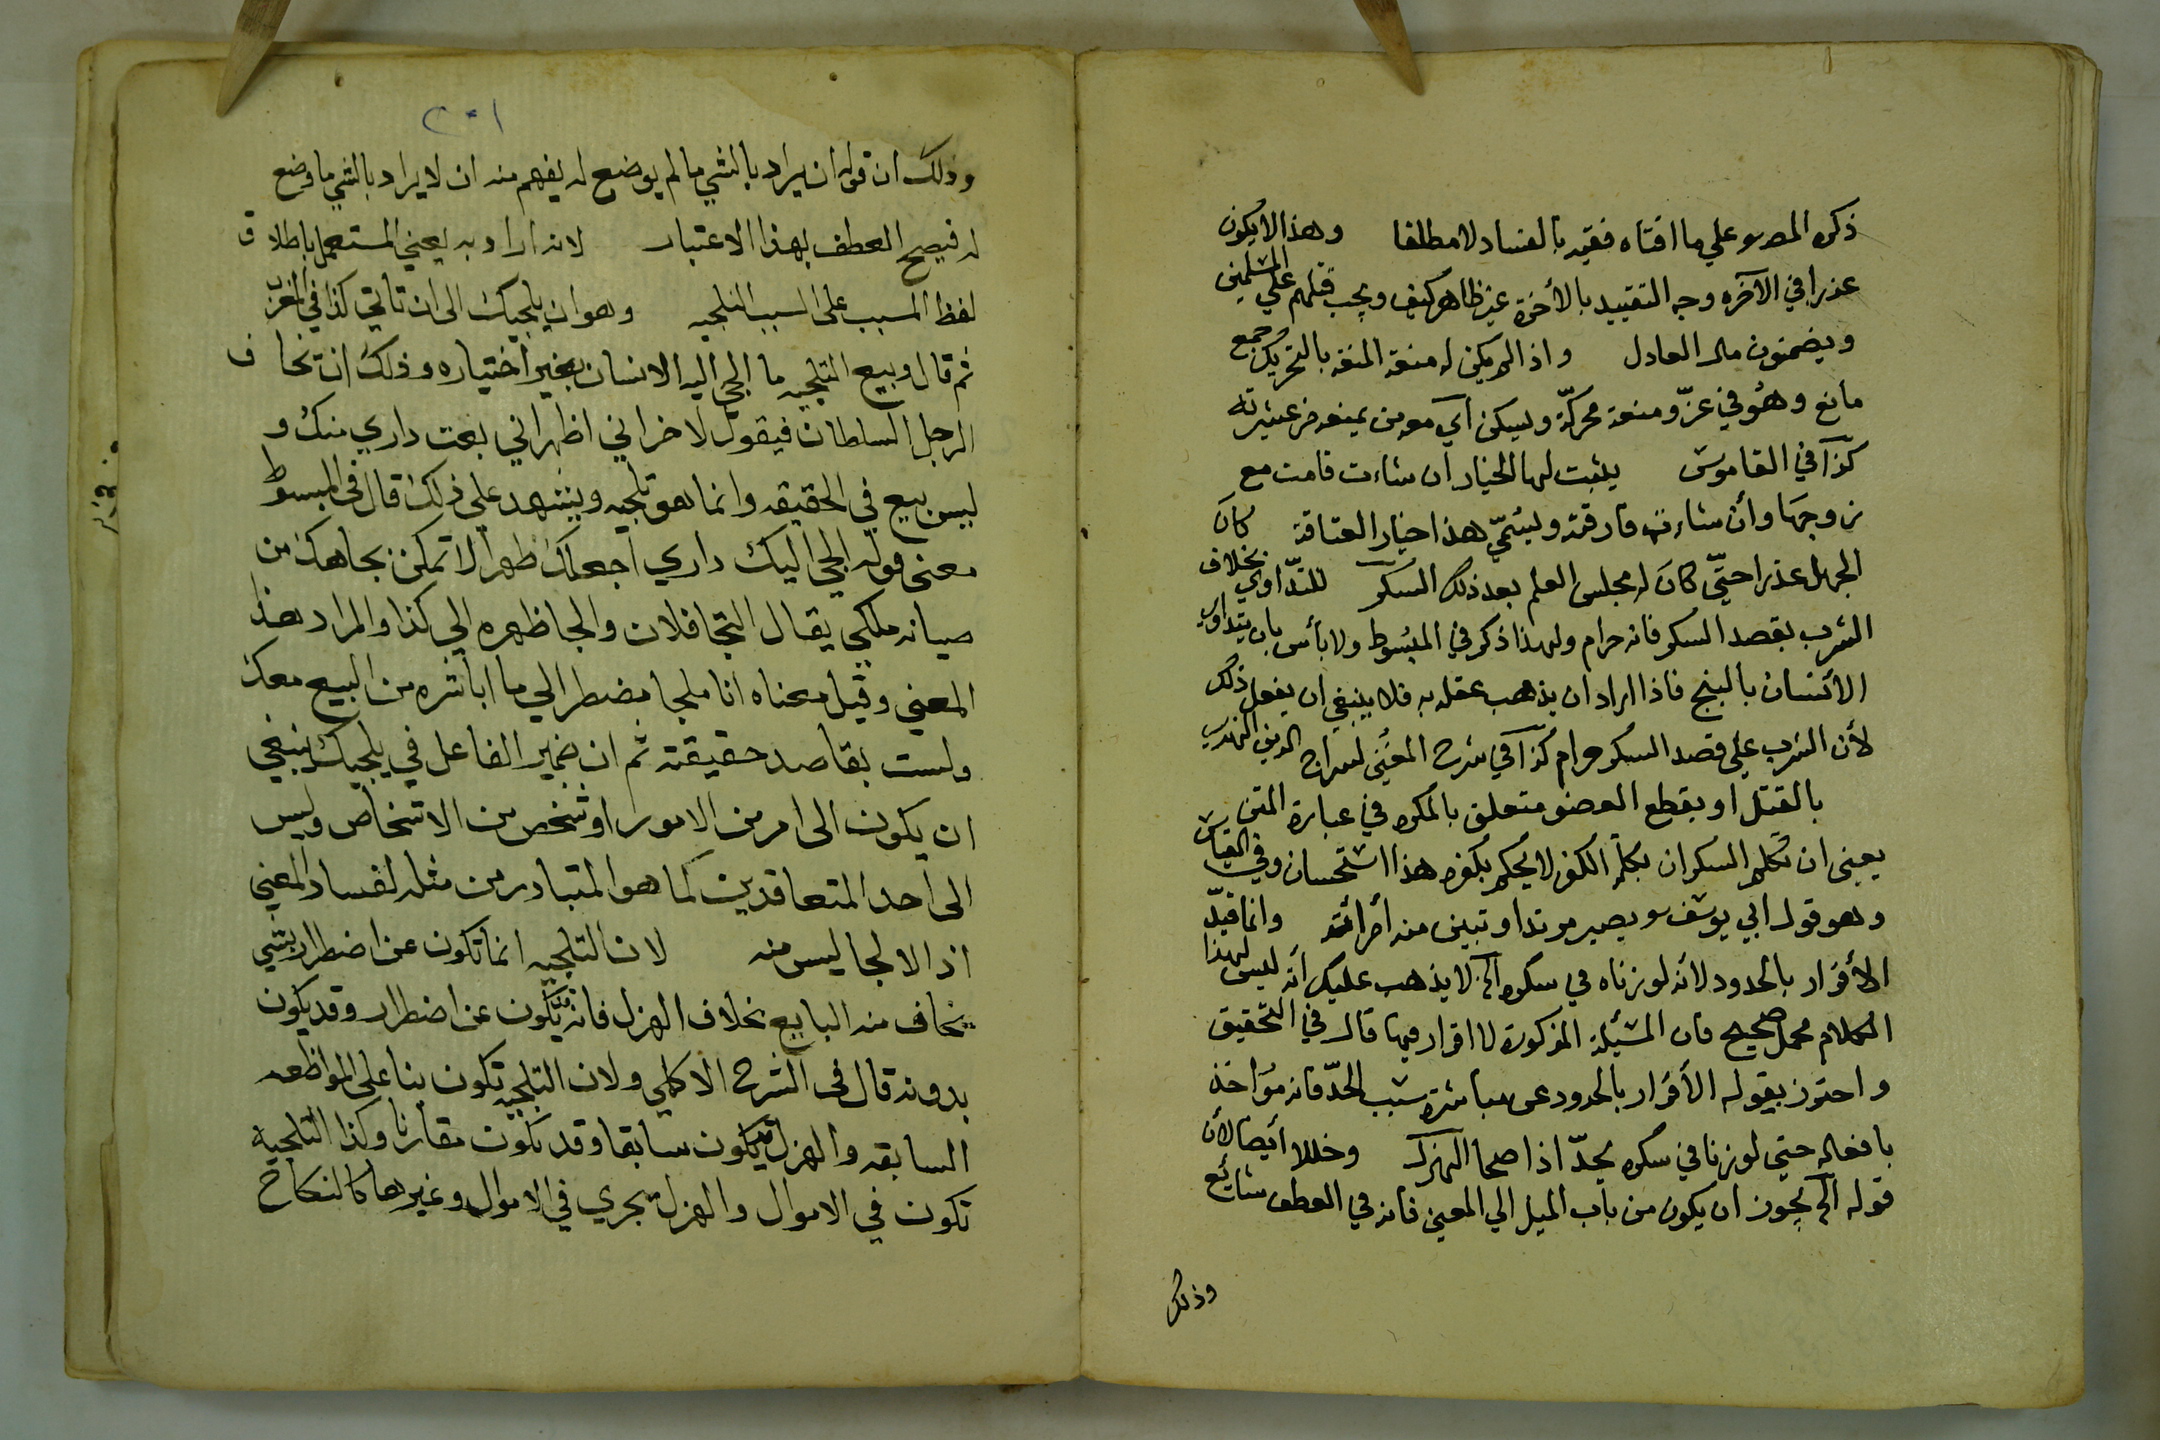 ذكره المص علي ما افتاه فقيد بالفساد لا مطلقا وهذا لا يكون
عذرا في الآخره وجه التقييد بالأخرة غير ظاهر كيف ويجب قتلهم علي المسلمين
ويضمنون مال العادل واذا لم يكن له منعة المنعه بالتحريك جمع
مانع وهو في عزّ ومنعة محركة ويسكن أي معه من يمنعه من عشيرته
كذا في القاموس يثبت لها الخيار ان شاءت قامت مع
زوجها وأن شاءت فارقته ويسمّي هذا خيار العتاقة كان
الجهل عذرا حتّي كان له مجلس العلم بعد ذلك السكر للتداوي بخلاف
الشرب بقصد السكر فانه حرام ولهذا ذكر في المبسوط ولا بأس بان يتداوي
الأنسان بالبنج فاذا اراد ان يذهب عقله به فلا ينبغي ان يفعل ذلك
لأن الشرب علي قصد السكر حرام كذا في شرح المغني لسراج الدين الهندي
بالقتل او بقطع العضو متعلق بالمكره في عبارة المتن
يعني ان تكلم السكران بكلمة الكفر لا يحكم بكفره هذا استحسان وفي القياس
وهو قول ابي يوسف يصير مرتدا وتبين منه أمرأته وانما قيّد
الأقرار بالحدود لأنه لو زناه في سكره الخ لا يذهب عليك أنه ليس لهذا
الكلام محمل صحيح فان المسئلة المذكورة لا اقرار فيها قال في التحقيق
واحترز بقوله الأقرار بالحدود عن مباشرة سبب الحدّ فانه مؤاخذ
بافعاله حتي لو زنا في سكره يحدّ اذا صحا الهزل وخللا أيضا لأن
قوله الخ يجوز ان يكون من باب الميل الي المعني فانه في العطف شائع
وذلك
٢٠١
وذلك ان قوله ان يراد بالشي ما لم يوضع له يفهم منه ان لا يراد بالشي ما وضع
له فيصح العطف بهذا الاعتبار لانه اراد به يعني المستعمل باطلاق
لفظ المسبب علي السبب التلجيه وهو ان يلجيك الى ان تاتي كذا في المغرب
ثم قال وبيع التلجيه ما الجي اليه الانسان بغير اختياره وذلك ان تخاف
الرجل السلطان فيقول لاخر اني اظهر اني بعت داري منك و
ليس بيع في الحقيقه وانما هو تلجيه ويشهد علي ذلك قال في المبسوط
معني قوله الجي اليك داري اجعلك ظهرا لا تمكن بجاهك من
صيانه ملكي يقال التجا فلان والجا ظهره الي كذا والمراد هذا
المعني وقيل معناه انا ملجا مضطر الي ما اباشره من البيع معك
ولست بقاصد حقيقته ثم ان ضمير الفاعل في يلجيك ينبغي
ان يكون الى امر من الامور او شخص من الاشخاص وليس
الى احد المتعاقدين كما هو المتبادر من مثله لفساد المعني
اذ الالجا ليس منه لان التلجيه انما تكون عن اضطرار بشي
يخاف منه البايع بخلاف الهزل فانه قد يكون عن اضطرار وقد يكون
بدونه قال في الشرح الاكملي ولان التلجيه تكون بنا علي المواظعه
السابقه والهزل قد يكون سابقا وقد يكون مقارنا وكذا التلجية
تكون في الاموال والهزل يجري في الاموال وغيرها كالنكاح